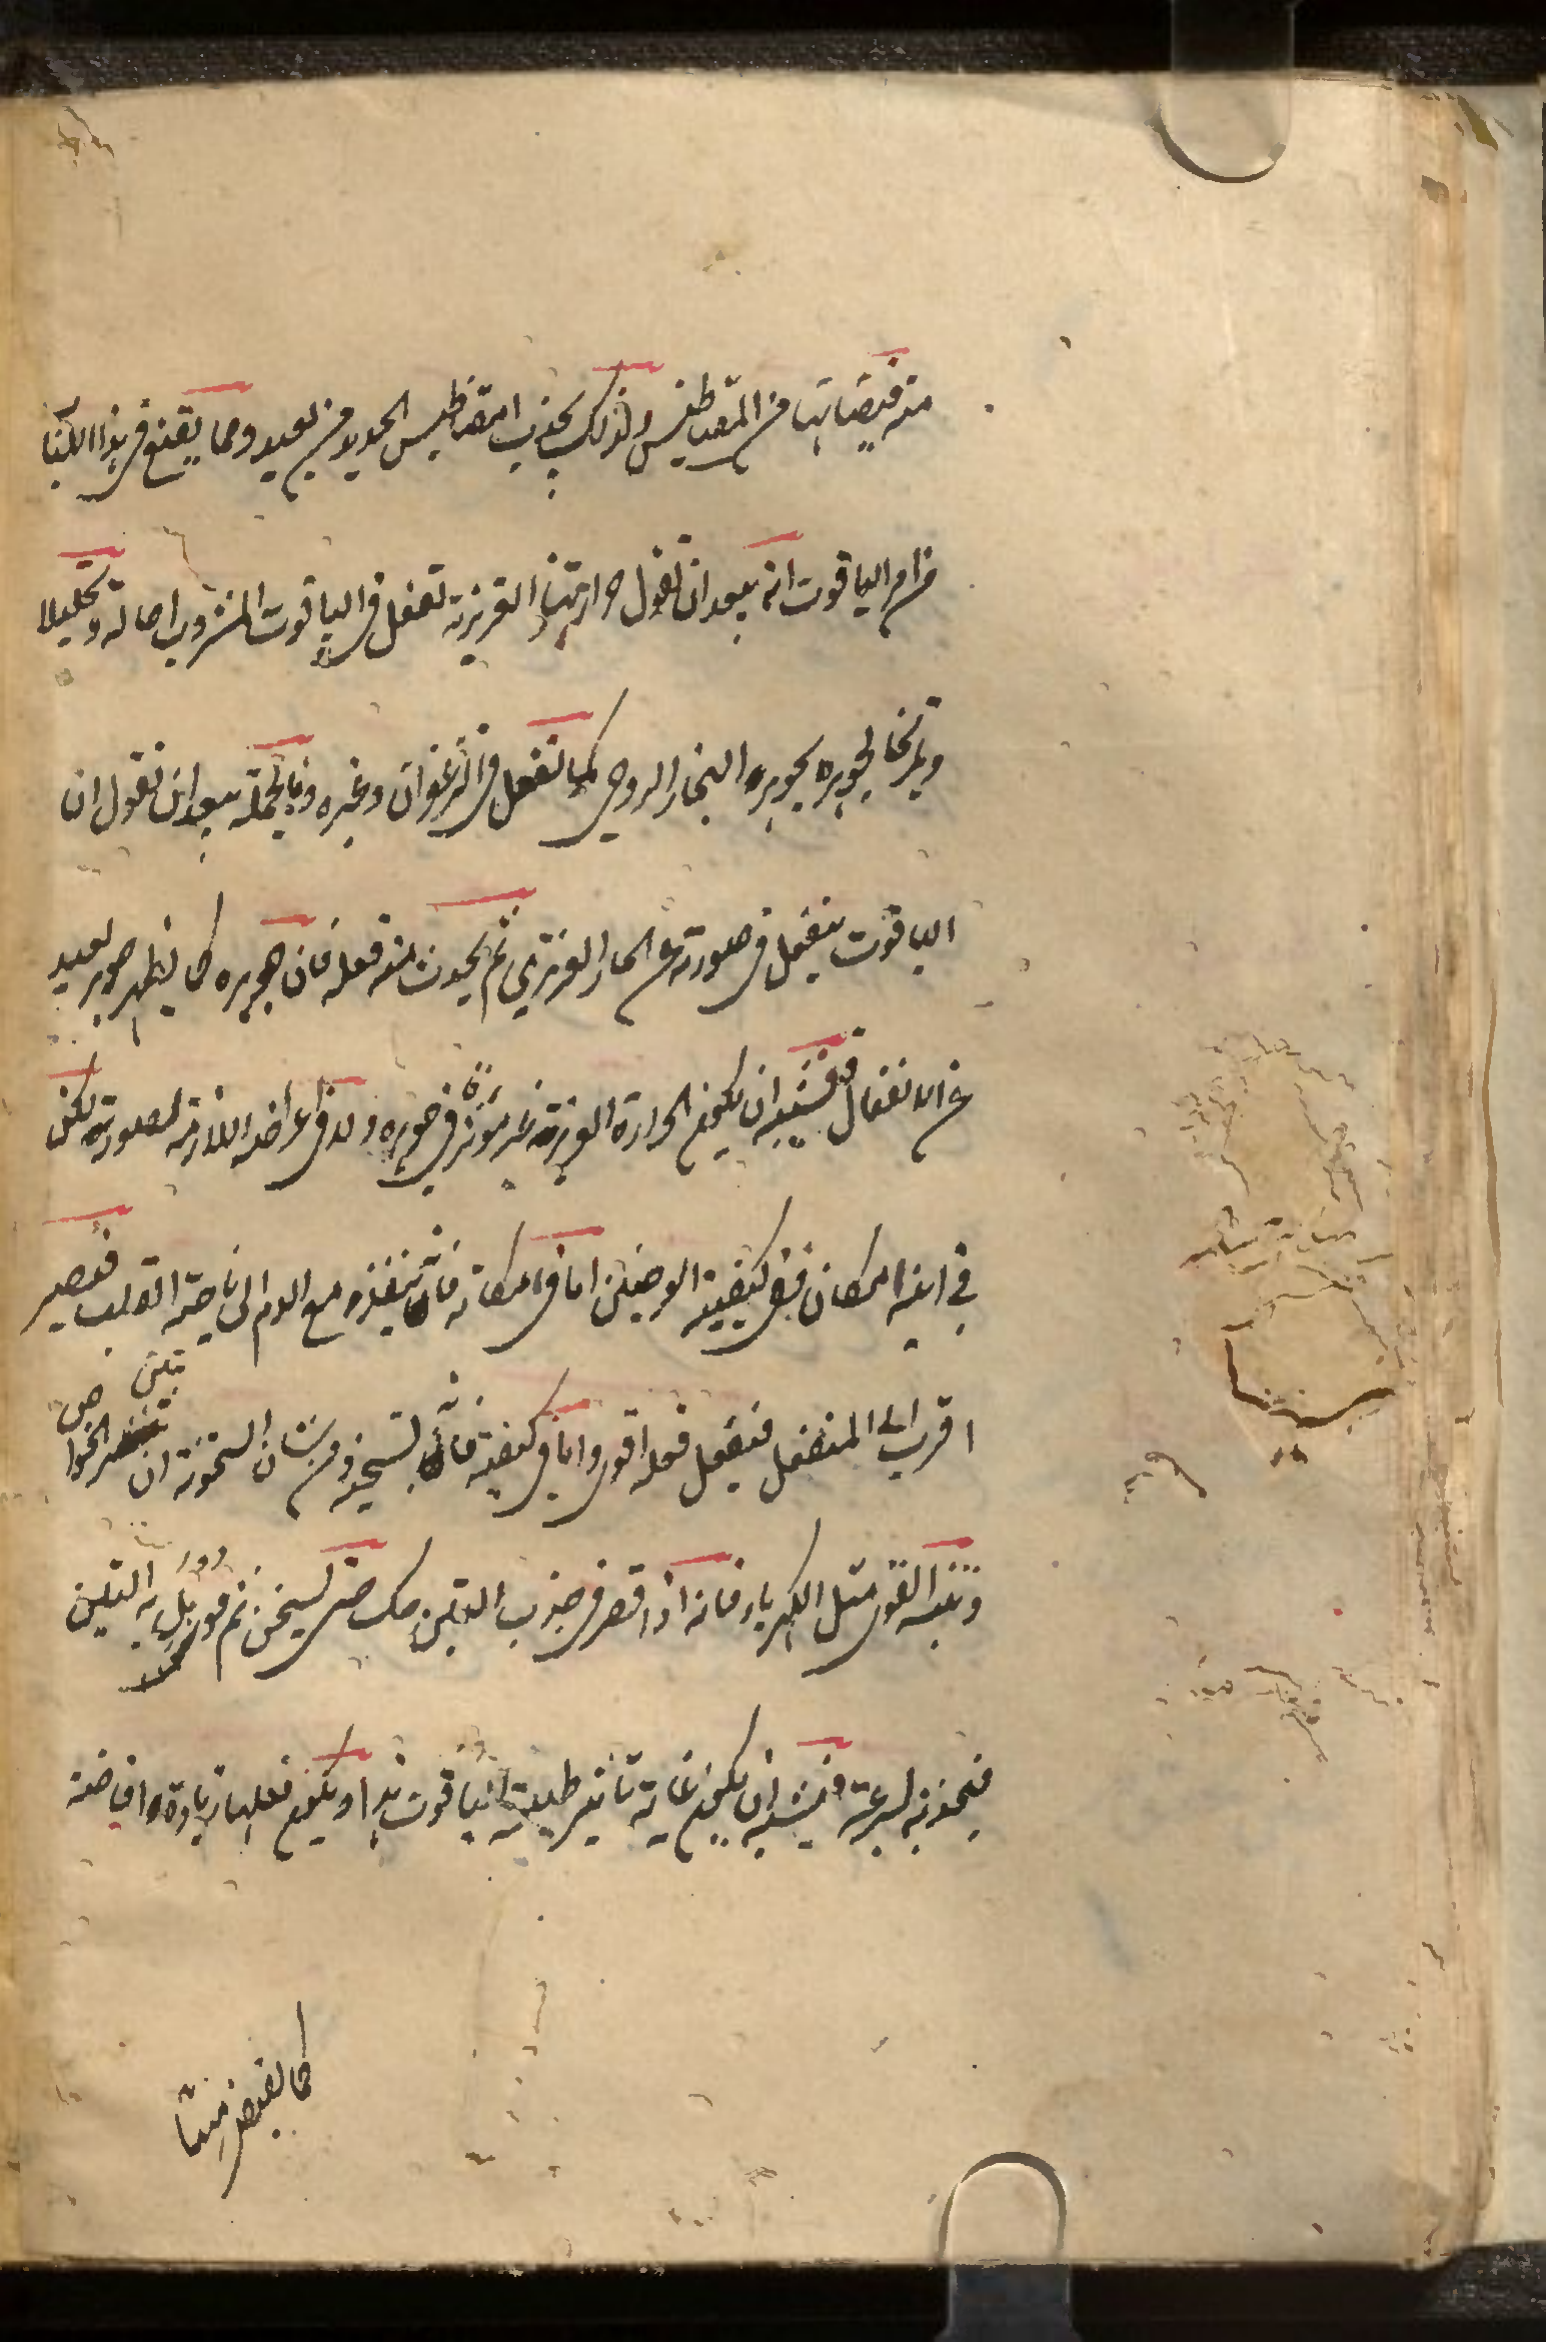 منه فيضانها من المقناطيس ولذلك يجذب المقناطيس الحديد من بعيد ومما يقنع في هذا الكتاب
من امر الياقوت انه يبعد ان نقول حرارتنا الغريزية تفعل في الياقوت المشروب احالة وتحليلا
وتمزيجا لجوهره بجوهر البخار الروحي كما تفعل في الزعفران وغيره وبالجملة يبعد ان نقول ان
الياقوت ينفعل في صورته عن الحار الغريزي ثم يحدث منه فعله فان جوهره كما يظهر جوهر بعيد
عن الانفعال فيشبه ان يكون الحرارة الغريزية غير مؤثرة في جوهره ولا في اعراضه اللازمة لصورته لكن
في اينه المكان وفي كيفيته اما في مكانه فانه ينفذه مع الدم الى ناحية القلب فيصير
اقرب الى المنفعل فيفعل فعله اقوى واما في كيفيته فانه يسخنه ومن شان السخونة ان تثير الخواص
وتنبه القوى مثل الكهرباء فانه اذا قصر في جذب التبن حك حتى يسخن ثم قوبل به التبن
فيجذبه بسرعة فيشبه ان يكون غاية تاثير طبيعتنا في الياقوت هذا ويكون فعلها زيادة افاضة
كما يفيض منا